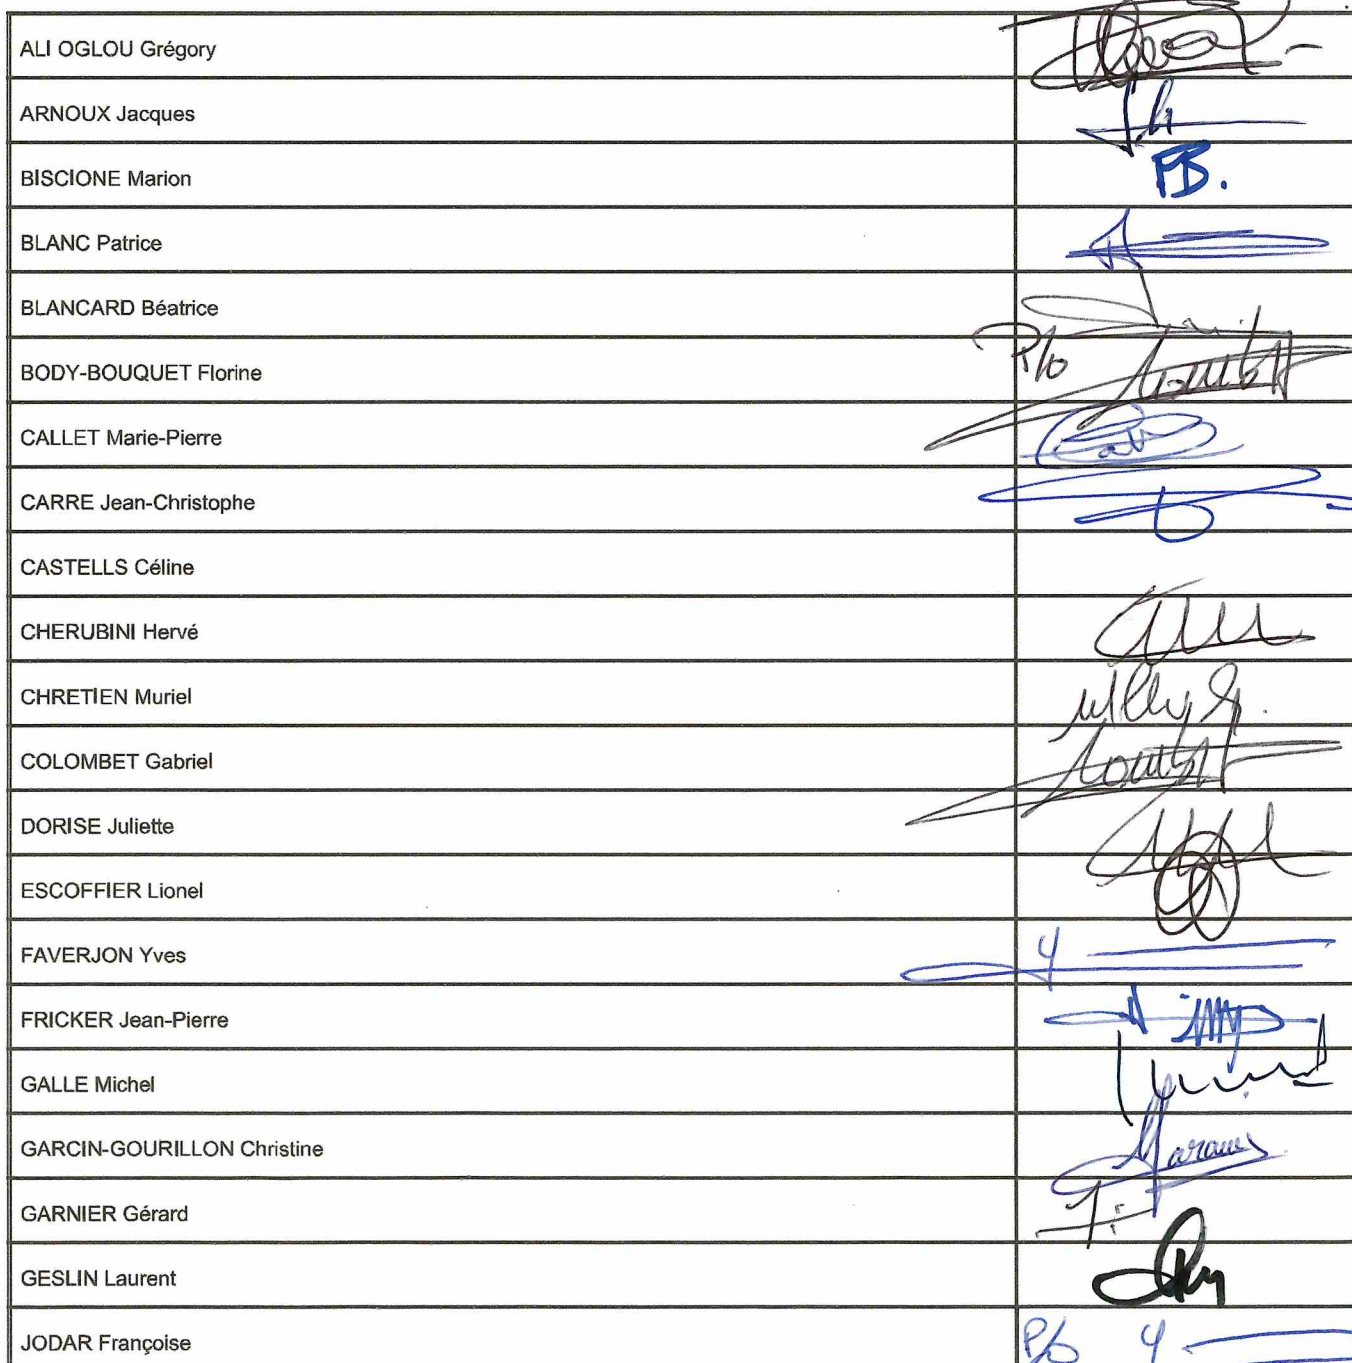 ALI OGLOU Grégory
ARNOUX Jacques
BISCIONE Marion
FB.
BLANC Patrice
BLANCARD Béatrice
BODY-BOUQUET Florine
P/o
CALLET Marie-Pierre
CARRE Jean-Christophe
CASTELLS Céline
CHERUBINI Hervé
CHRETIEN Muriel
COLOMBET Gabriel
DORISE Juliette
ESCOFFIER Lionel
FAVERJON Yves
FRICKER Jean-Pierre
GALLE Michel
GARCIN-GOURILLON Christine
GARNIER Gérard
GESLIN Laurent
JODAR Françoise P/o